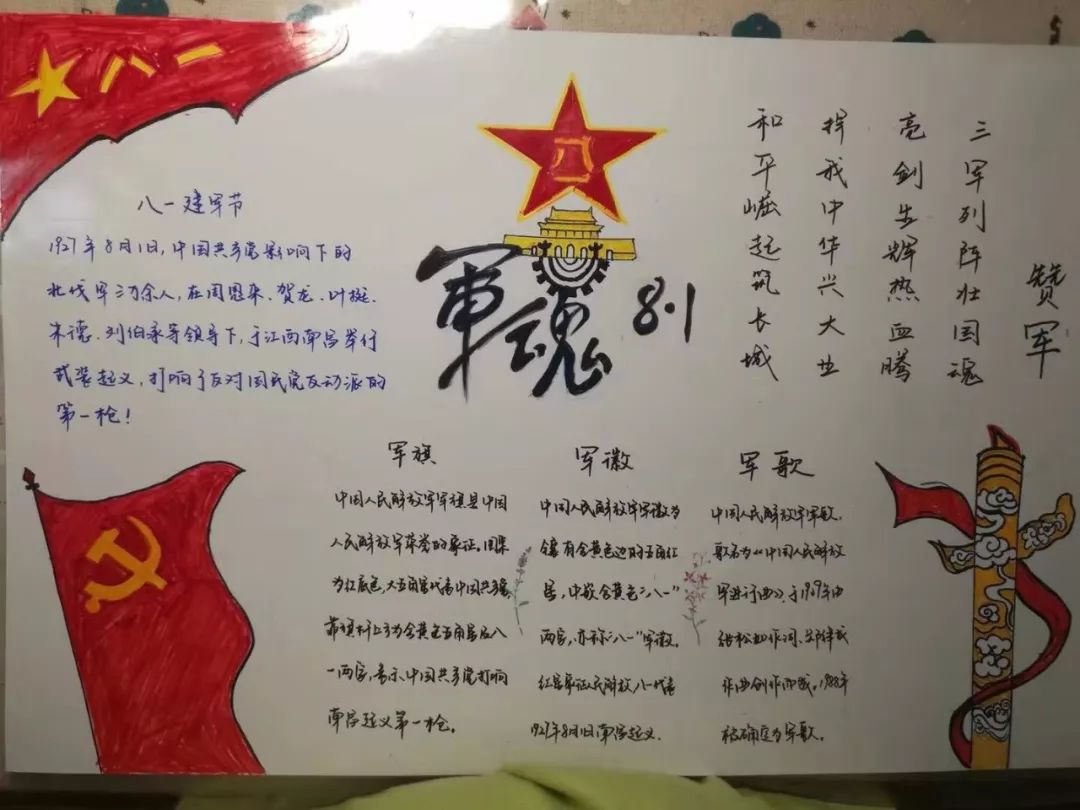 八一
八一建军节
1927年8月1日,中国共产党影响下的
北伐军三万余人,在周恩来、贺龙、叶挺、
朱德、刘伯承等领导下,于江西南昌举行
武装起义,打响了反对国民党反动派的
第一枪!
八一
軍魂
8.1
赞军
三军列阵壮国魂
亮剑生辉热血腾
捍我中华兴大业
和平崛起筑长城
军旗
中国人民解放军军旗是中国
人民解放军荣誉的象征。图案
为红底色,大五角星代表中国共产党,
靠旗杆上方为金黄色五角星及八
一两字,表示中国共产党打响
南昌起义第一枪。
军徽
中国人民解放军军徽为
镶有金黄色边的五角红
星,中嵌金黄色“八一”
两字,亦称“八一”军徽。
红星象征人民解放,八一代表
1927年8月1日南昌起义.
军歌
中国人民解放军军歌,
歌名为《中国人民解放
军进行曲》,于1909年由
张松如作词、郑律成
作曲创作而成。1988年
被确定为军歌。